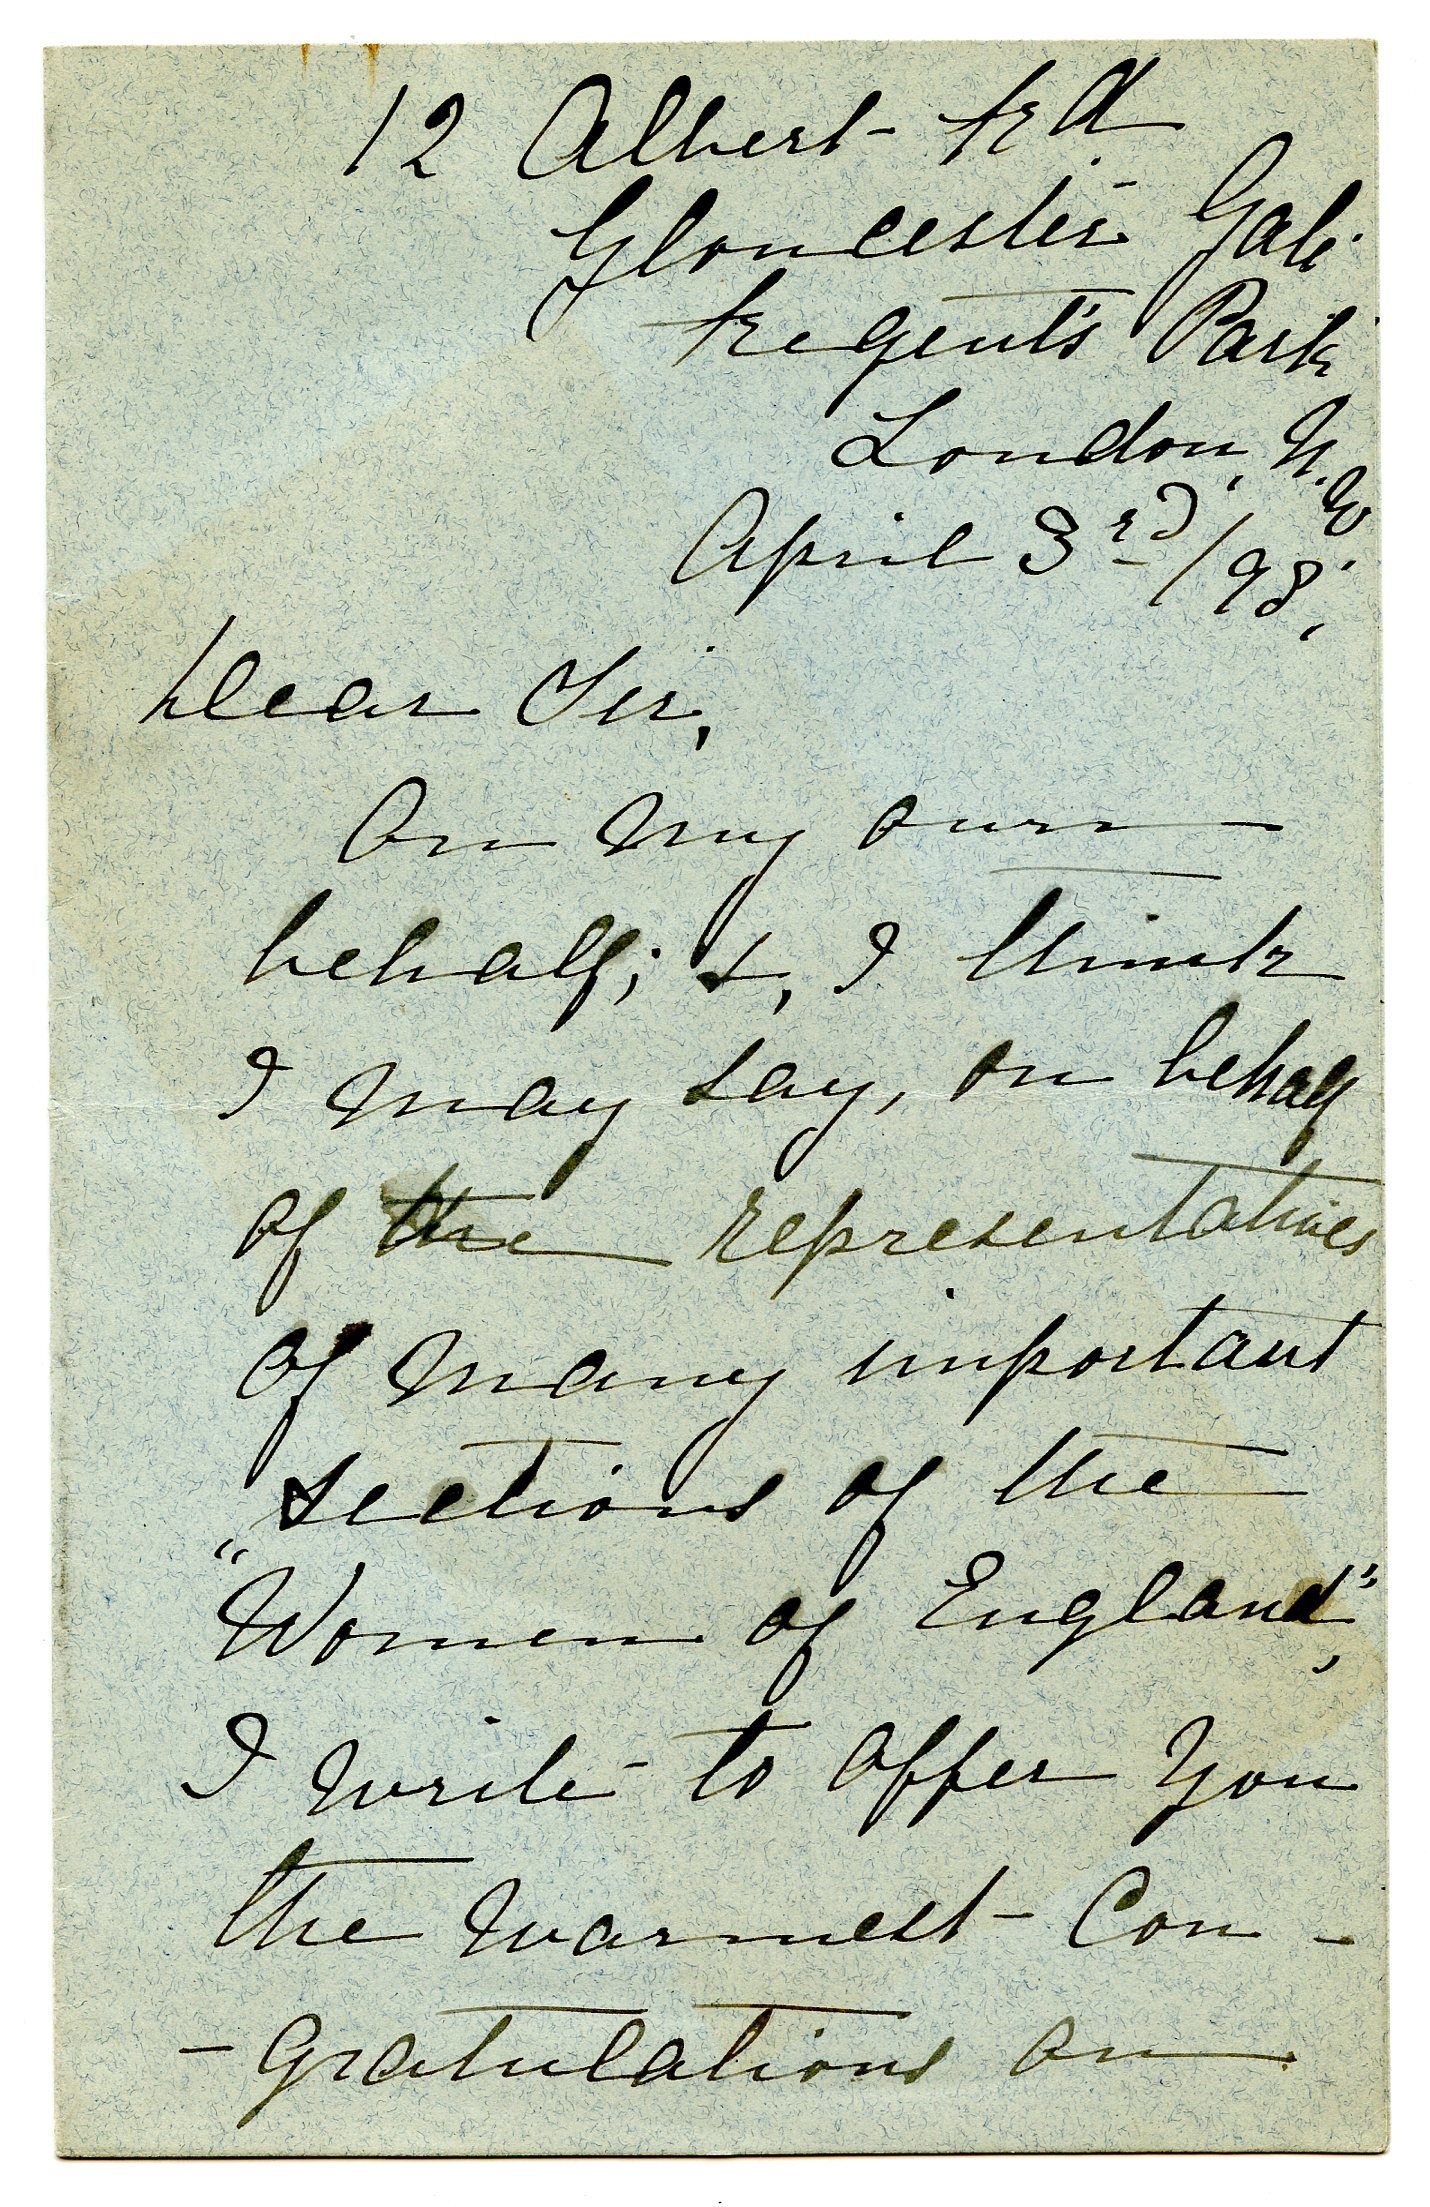 12 Albert Rd
Gloucester Gate
Regent's Park
London, N.W.
April 3rd/98.
Dear Sir,
On my own
behalf; &, I think
I may say, on behalf
of the representatives
of many important
sections of the
"Women of England",
I write to offer you
the warmest Con-
-gratulations on